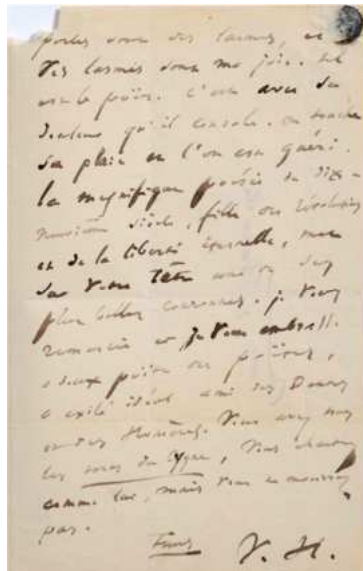 vos larmes, et
vos larmes sont ma joie. tel
est le poète. c'est avec sa
douleur qu'il console. on touche
sa plaie et l'on est guéri.
la magnifique poésie du dix-
neuvième siècle, fille des révolutions
et de la liberté éternelle, met
sur votre tête une de ses
plus belles couronnes. je vous
remercie et je vous embrasse.
ô doux poète des poètes,
ô exilé idéal ami des Dantes
et des Homères. Vous avez tous
les dons du cygne, vous chantez
comme lui, mais vous ne mourrez
pas.
V. H.